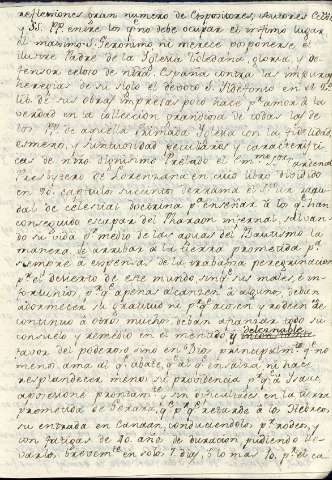 reflexiones gran numero de Expositores, Autores
y SS. PP. entre los qe. no debe ocupar el infimo lugar
el maximo S. Geronimo ni merece posponerse el
ilustre Padre de la Iglesia Toledana, gloria, y de-
fensor celoso de nra. España contra las impuras
heregias de su siglo el devoto S. Ildefonso en el
de sus obras impresas poco hace pr. amor a la
verdad en la colleccion grandiosa de todas las de
los PP. de aquella Primada Iglesia con la fidelidad
esmero, y sumtuosidad peculiares y caracteristi-
cas de nro. dignisimo Prelado el Cardenal
Presbytero de Lorenzana en cuio libro dividido
en 90. capitulos succintos derrama el Sto. un
dal de celestial doctrina pa. enseñar a los qe. han
conseguido escapar del Pharaon infernal salvan-
do su vida pr. medio de las aguas del Bautismo la
manera de arribar a la tierra prometida pa.
siempre a expensas de la trabajosa peregrinacion
pr. el desierto de este mundo sin qe. sus males, e in-
fortunios pr. qe. apenas alcanzen a alguno, deban
adormecer su gratitud ni pr. qe. acosen y rodeen de
continuo a otros muchos deban afianzar todo su
consuelo y remedio en el mentido y deleznable
favor del poderoso sino en Dios principalmte. qe. no
menos ama al qe. abate, qe. al qe. ensalza ni hace
resplandecer menos su providencia pr. qe. a Isaac
aposesione prontamte. y sin dificultades en la tierra
prometida de Gerara, qe. pr. qe. retarde a los Hebreos
su entrada en Canaan, conduciendolos pr. rodeos, y
con fatigas de 40. años de duracion, pudiendo lle-
varlos brevemte. en solos 7. dias, o lo mas 10. pr. el ca